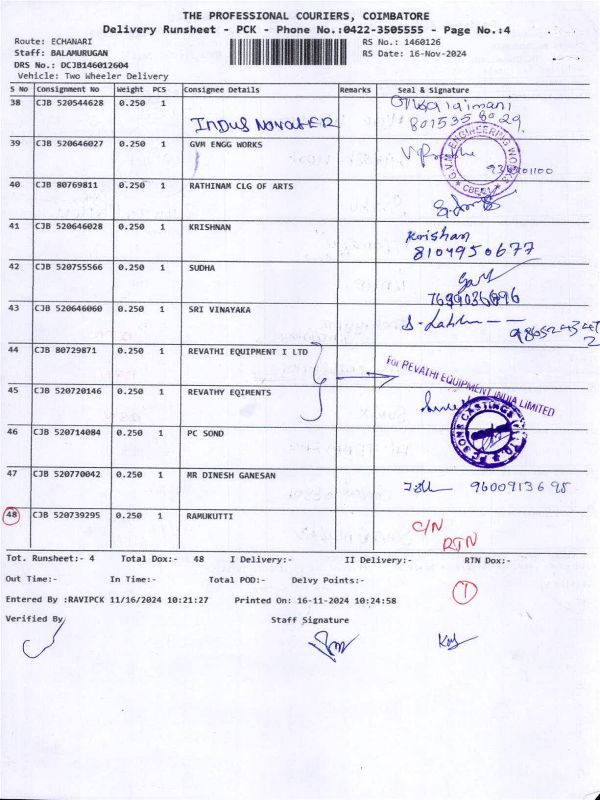 THE PROFESSIONAL COURIERS, COIMBATORE
Delivery Runsheet - PCK - Phone No.:0422-3505555 - Page No.:4
Route: ECHANARI RS No.: 1460126
Staff: BALAMURUGAN RS Date: 16-Nov-2024
DRS No.: DCJB146012604
Vehicle: Two Wheeler Delivery
S No Consignment No Weight PCS Consignee Details Remarks Seal & Signature
38 CJB 520544628 0.250 1
INDUS NOVATER 801535 8029
39 CJB 520646027 0.250 1 GVM ENGG WORKS
G.V.M. ENGINEERING WORKS CBE-21
40 CJB 80769811 0.250 1 RATHINAM CLG OF ARTS
41 CJB 520646028 0.250 1 KRISHNAN Krishnan
8104950677
42 CJB 520755566 0.250 1 SUDHA
43 CJB 520646060 0.250 1 SRI VINAYAKA
44 CJB 80729871 0.250 1 REVATHI EQUIPMENT I LTD
For REVATHI EQUIPMENT INDIA LIMITED
45 CJB 520720146 0.250 1 REVATHY EQIMENTS
46 CJB 520714084 0.250 1 PC SOND
47 CJB 520770042 0.250 1 MR DINESH GANESAN 9600913698
48 CJB 520739295 0.250 1 RAMUKUTTI C/N
RTN
Tot. Runsheet:- 4 Total Dox:- 48 I Delivery:- II Delivery:- RTN Dox:-
Out Time:- In Time:- Total POD:- Delvy Points:- 1
Entered By :RAVIPCK 11/16/2024 10:21:27 Printed On: 16-11-2024 10:24:58
Verified By Staff Signature